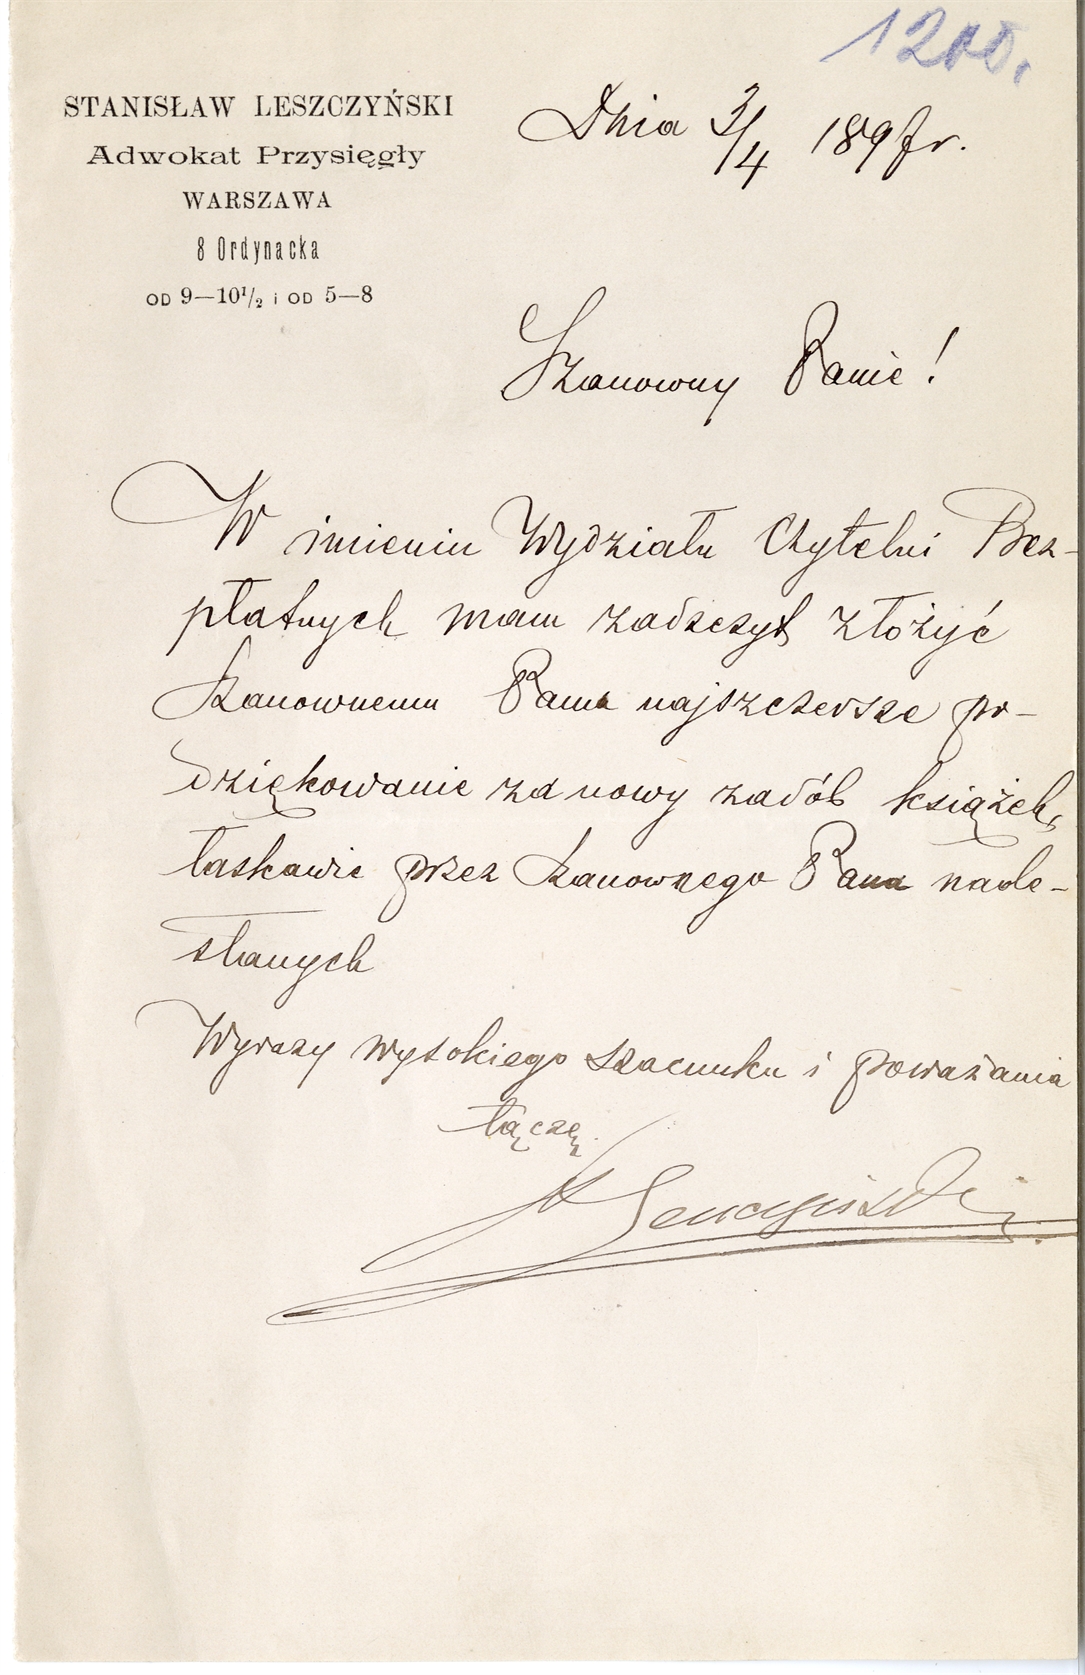 1200.
STANISŁAW LESZCZYŃSKI
Adwokat Przysięgły
WARSZAWA
8 Ordynacka
OD 9—10½ i OD 5—8
Dnia 3/4 1897 r.
Szanowny Panie!
W imieniu Wydziału Czytelni Bez-
płatnych mam zaszczyt złożyć
Szanownemu Panu najszczersze po-
dziękowanie za nowy zasób książek,
łaskawie przez Szanownego Pana nade-
słanych
Wyrazy wysokiego szacunku i poważania
łączę
S Leszczyński